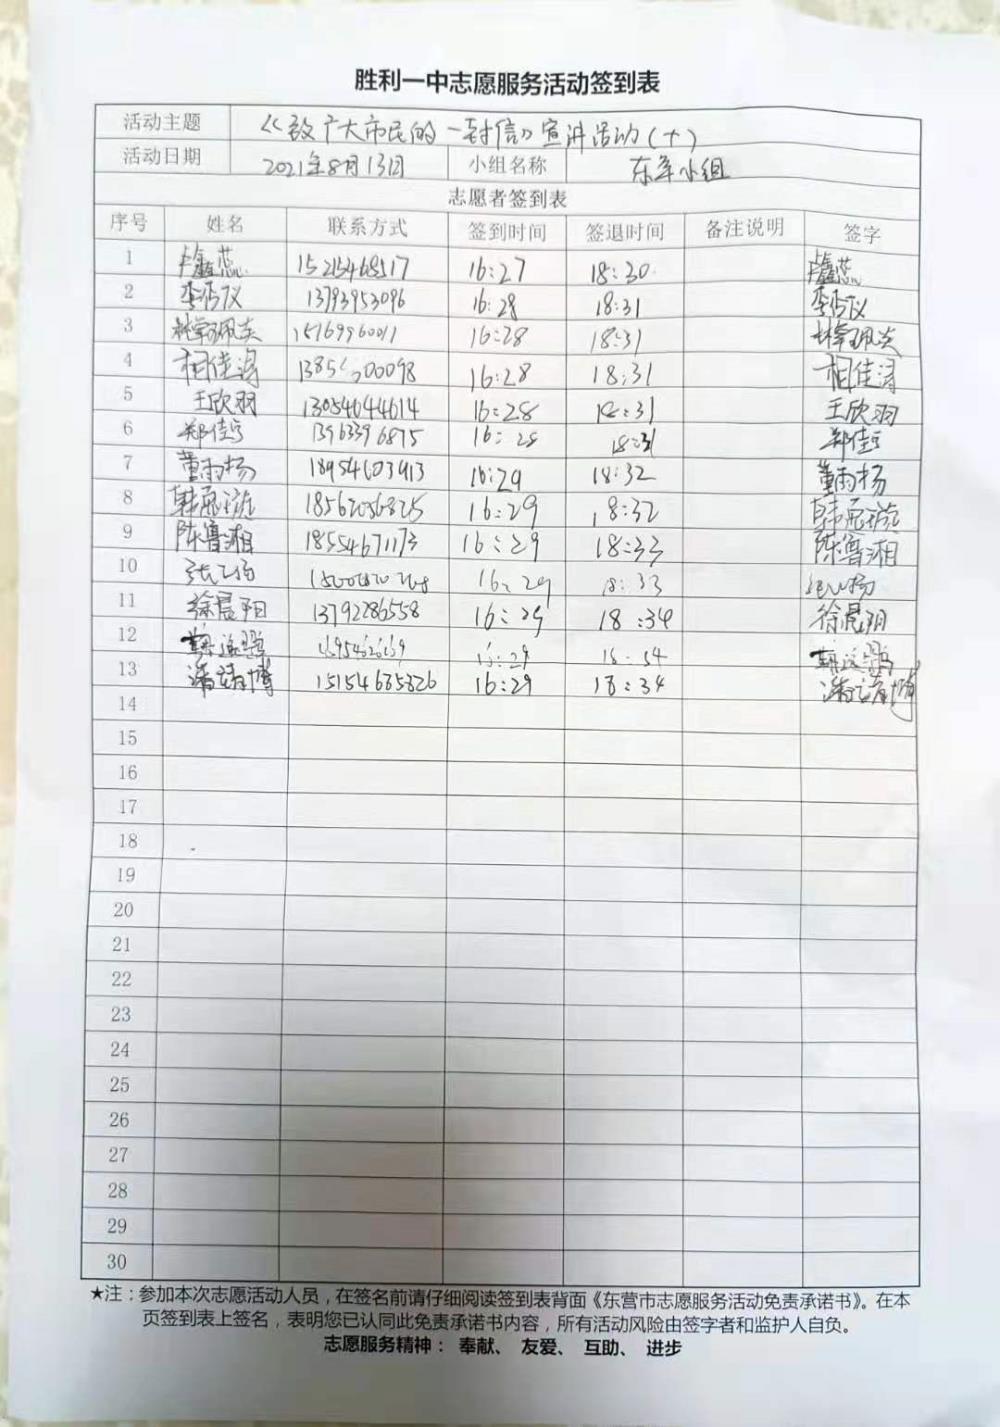 胜利一中志愿服务活动签到表
活动主题 《致广大市民的一封信》宣讲活动(十)
活动日期 2021年8月13日 小组名称 东辛小组
志愿者签到表
序号 姓名 联系方式 签到时间 签退时间 备注说明 签字
1 15215468517 16:27 18:30
2 13793953096 16:28 18:31
3 15169960011 16:28 18:31
4 相佳浔 16:28 18:31 相佳浔
5 王欣羽 13054644614 16:28 18:31 王欣羽
6 郑佳 13963396875 16:28 18:31 郑佳
7 董雨杨 18954603913 16:29 18:32 董雨杨
8 18562056825 16:29 18:32
9 陈鲁湘 18554671173 16:29 18:33 陈鲁湘
10 16:29 18:33
11 徐晨阳 13792286558 16:29 18:34 徐晨阳
12 16:29 18:34
13 潘靖博 15154685826 16:29 18:34 潘靖博
14
15
16
17
18
19
20
21
22
23
24
25
26
27
28
29
30
★注：参加本次志愿活动人员，在签名前请仔细阅读签到表背面《东营市志愿服务活动免责承诺书》。在本
页签到表上签名，表明您已认同此免责承诺书内容，所有活动风险由签字者和监护人自负。
志愿服务精神： 奉献、 友爱、 互助、 进步